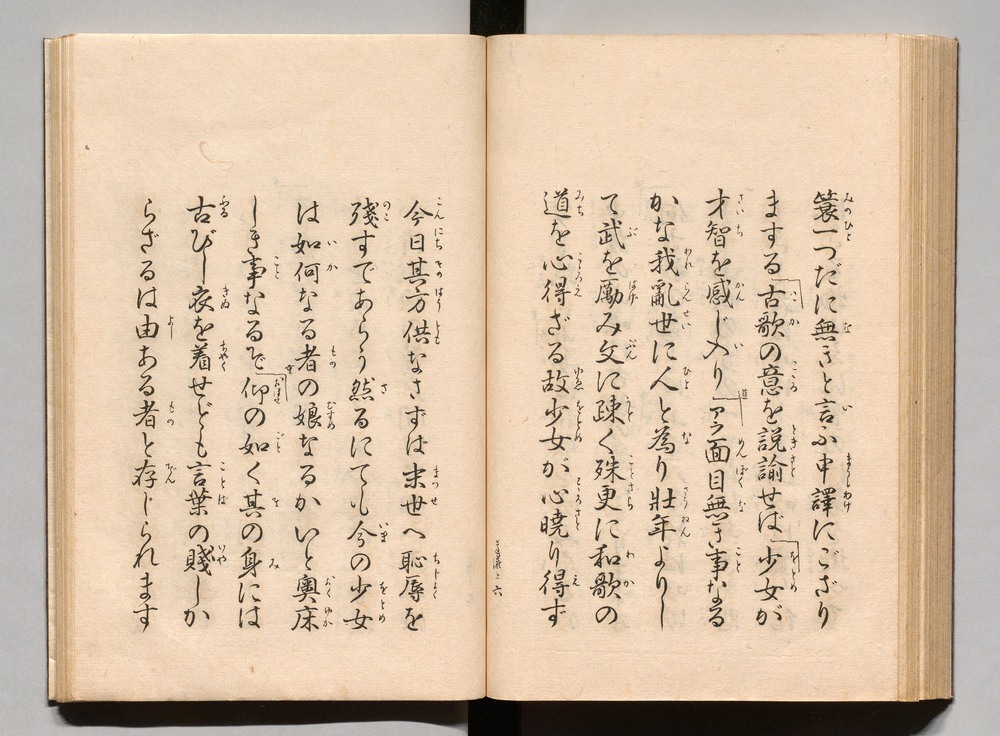 簑一つだに無きと言ふ申譯にござり
まする古歌の意を説諭せば少女が
才智を感じ入りアヽ面目無き事なる
かな我亂世に人と為り壯年よりし
て武を勵み文に疎く殊更に和歌の
道を心得ざる故少女が心曉り得ず
今日其方供なさずは末世へ恥辱を
殘すであらう然るにても今の少女
は如何なる者の娘なるかいと奥床
しき事なるぞ仰の如く其の身には
古びし衣を着せども言葉の賤しか
らざるは由ある者と存じられます